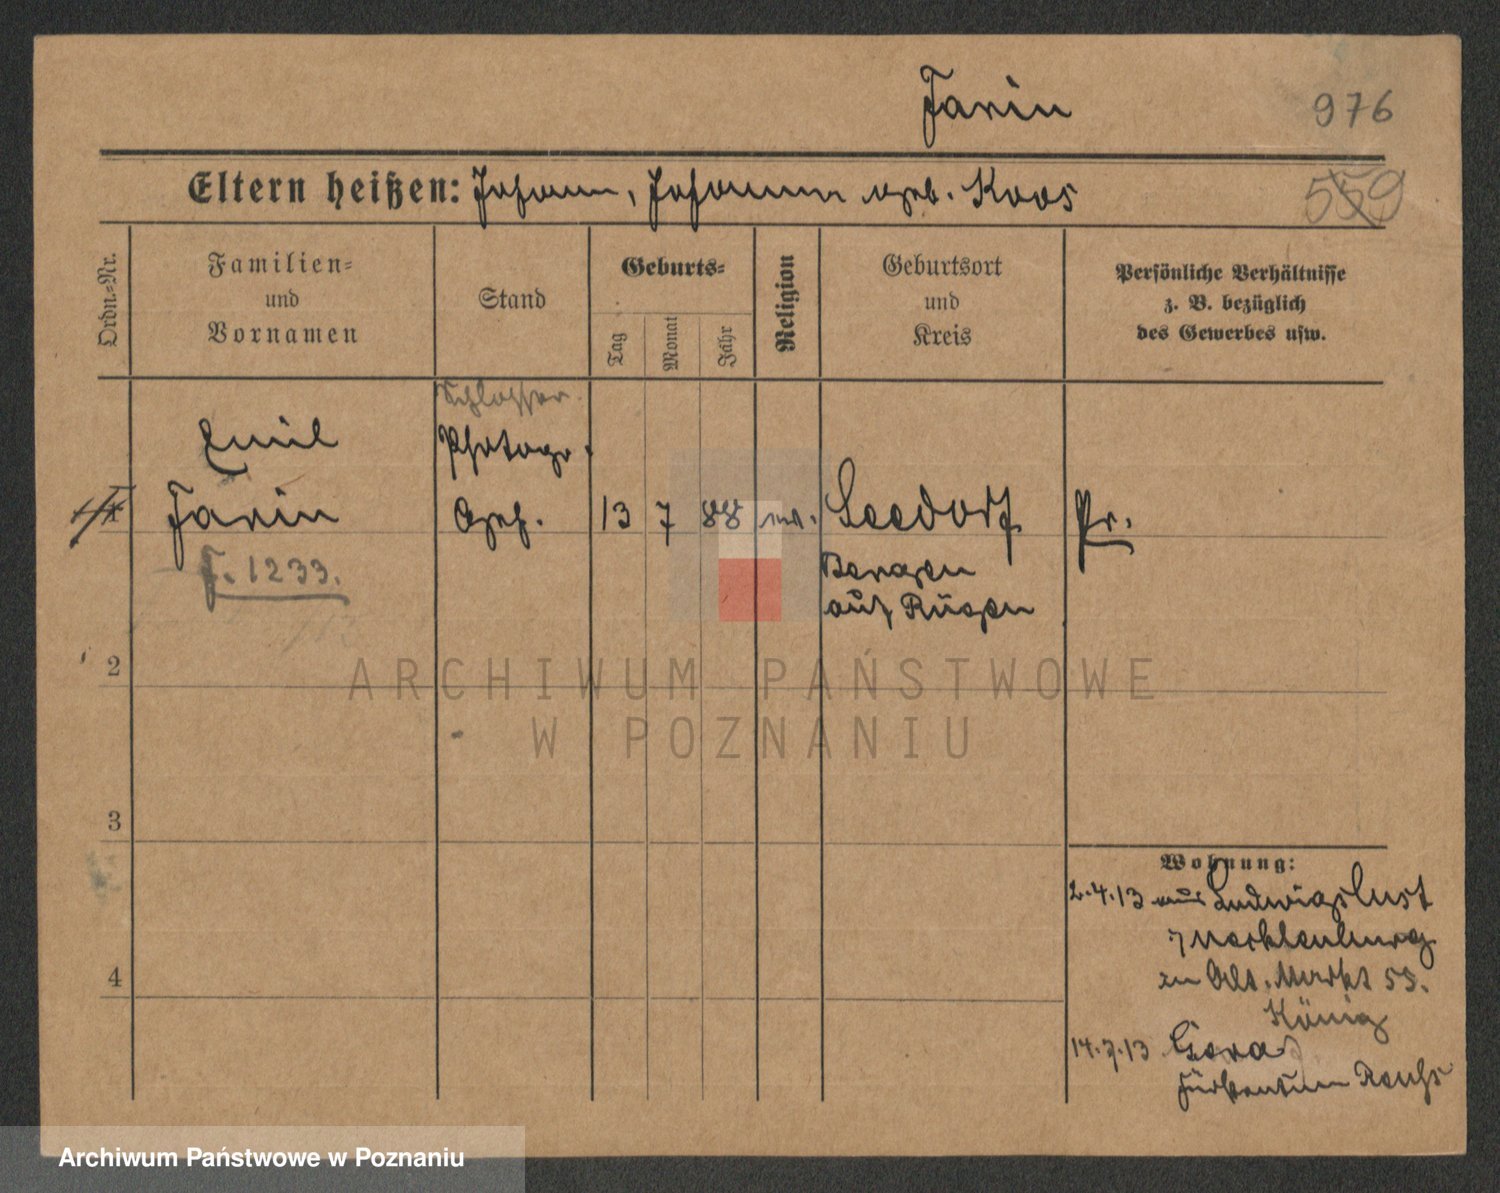 Farin
976
Eltern heißen: Johann, Johanna geb. Koos
559
Ordn.-Nr.
Familien-
und
Vornamen
Stand
Geburts-
Tag
Monat
Jahr
Religion
Geburtsort
und
Kreis
Persönliche Verhältnisse
z. B. bezüglich
des Gewerbes usw.
Schlosser
Emil
Photogr.
Farin
Geh.
13 7 88
Seedorf
Pr.
F. 1233.
Bergen
auf Rügen
2
ARCHIWUM PAŃSTWOWE
W POZNANIU
3
4
Wohnung:
2.4.13 aus Ludwigslust
Mecklenburg
Alt. Markt 53.
König
14.7.13 Gera
Fürstentum Reuß
Archiwum Państwowe w Poznaniu